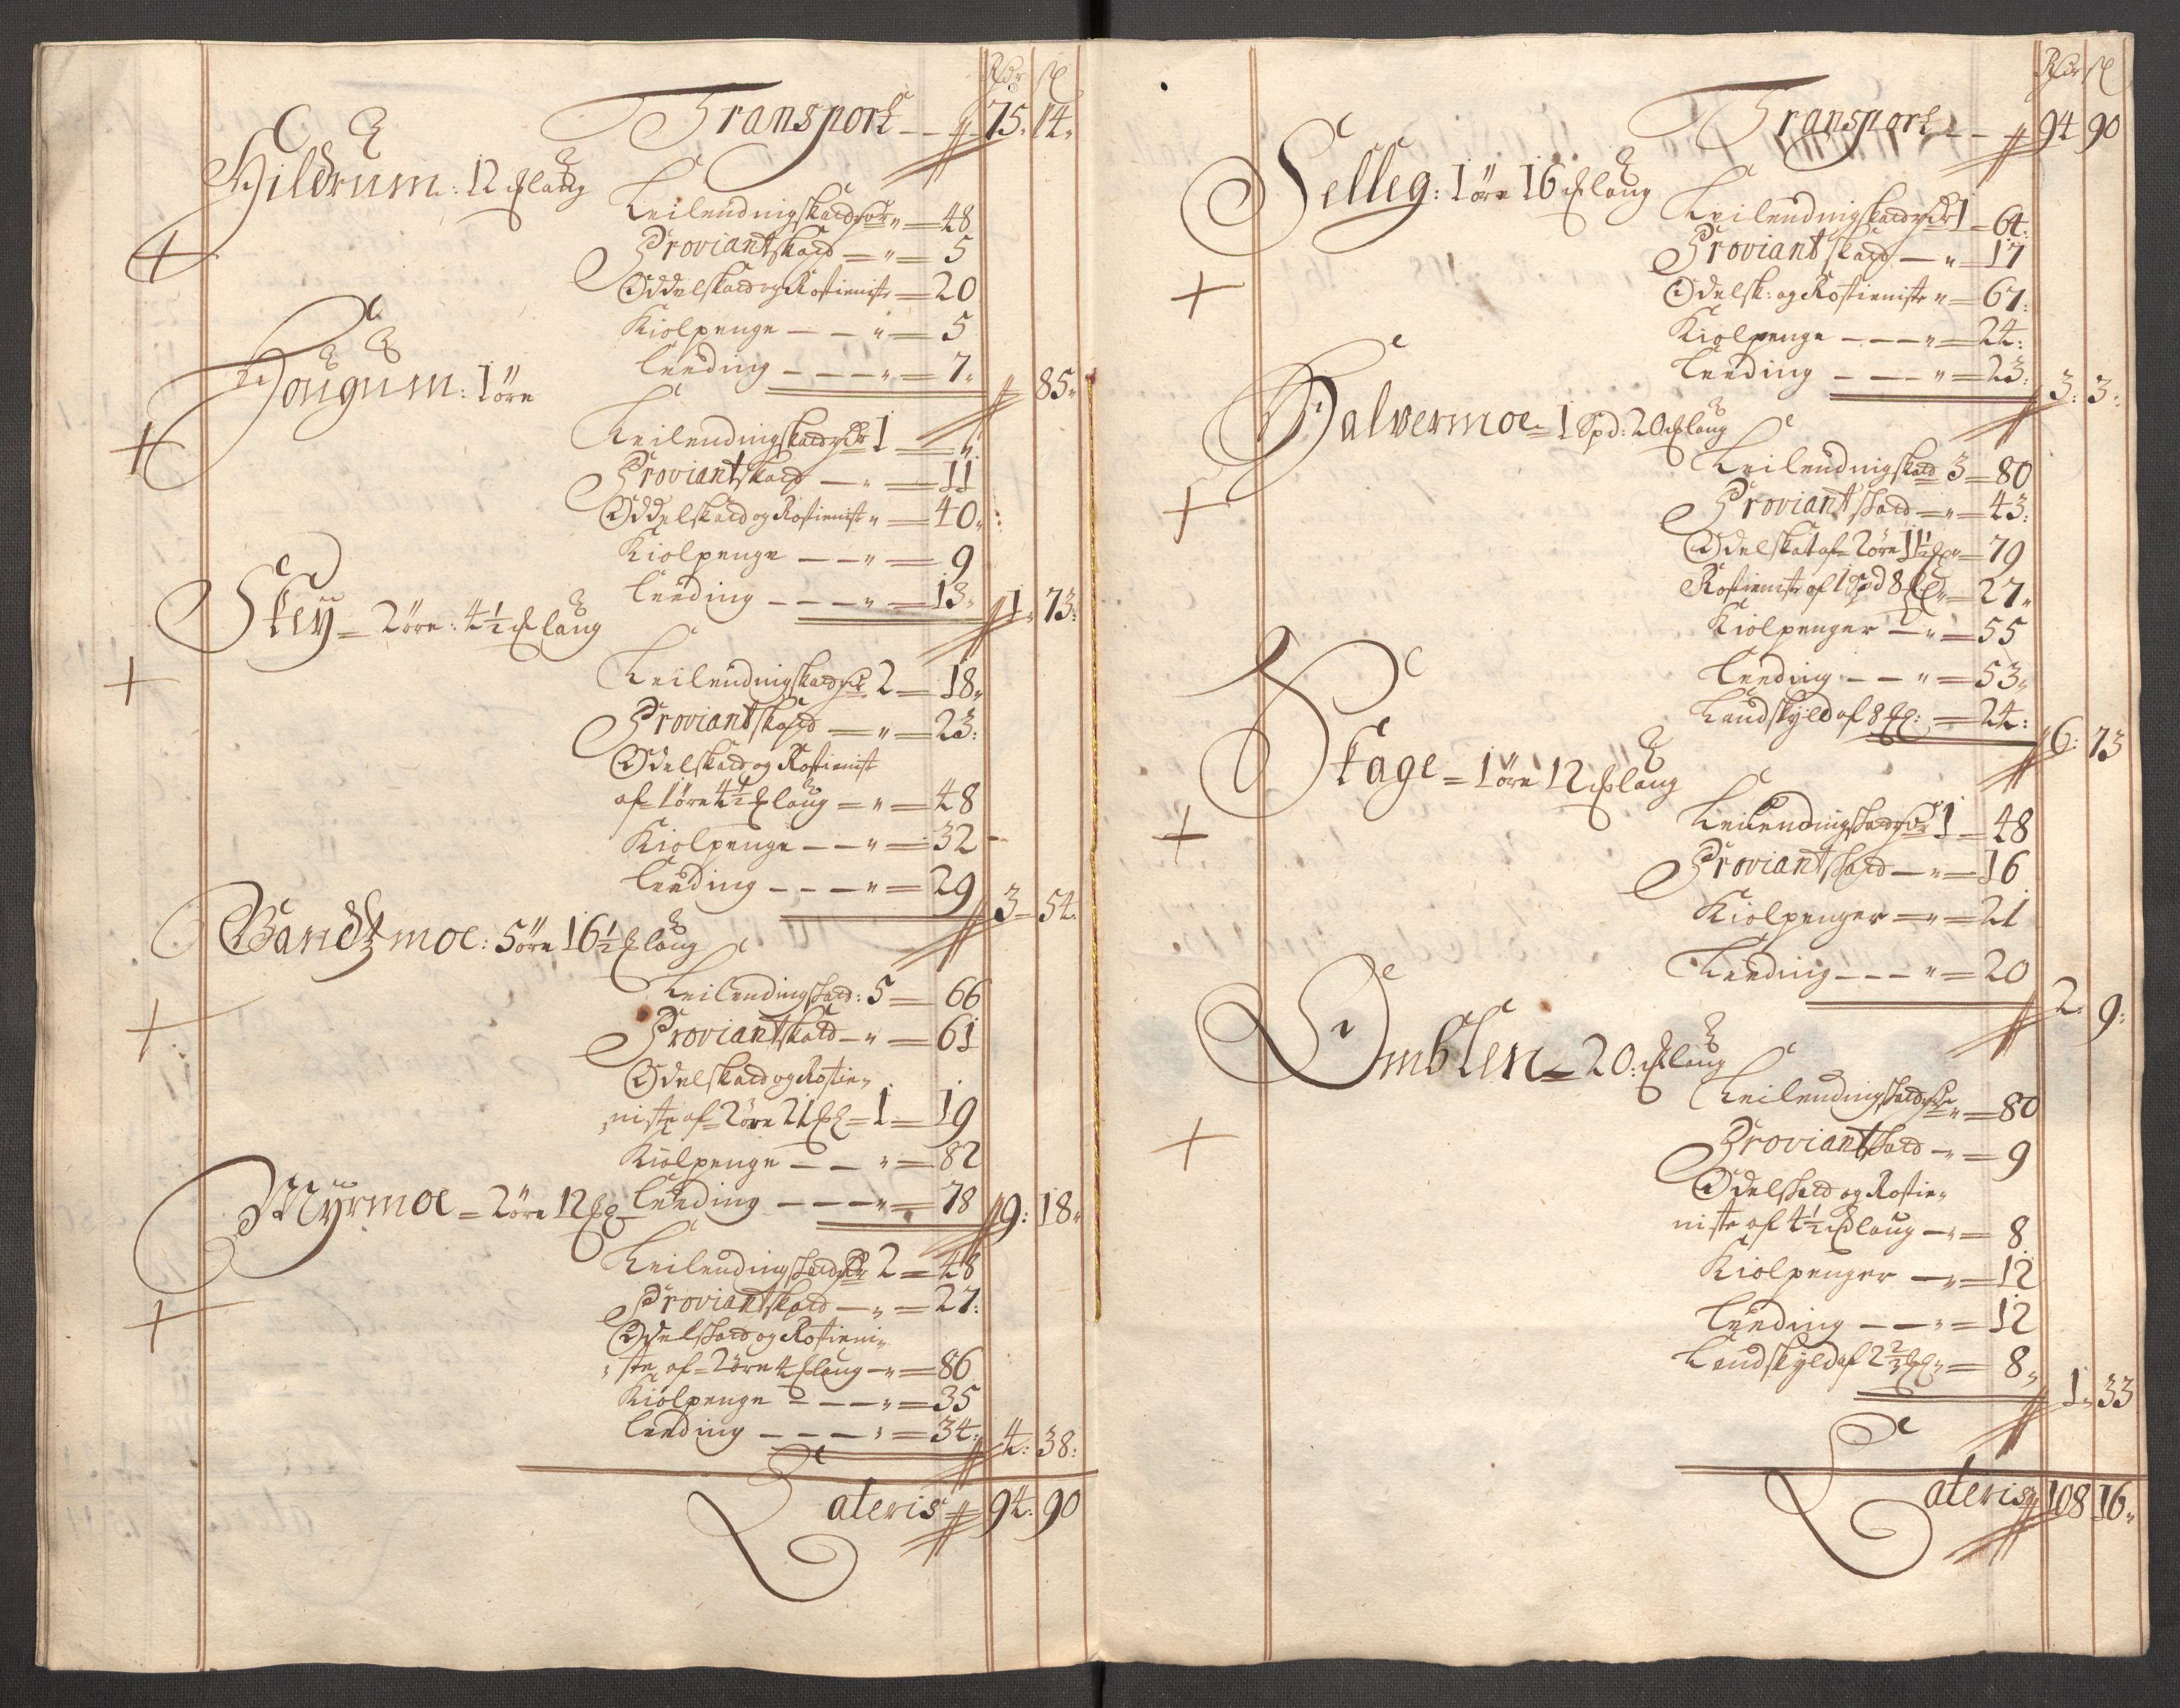 Rdr ß
Transport - - 75. 14.
Hildrum: 12 Mꝉaug
Leilendingskatt for " = 48
Proviantskatt = " = 5
Oddelskatt og Rostieniste = 20
Kiolpenge - - " = 5
Leeding - - - " = 7.
85.
Hougum: 1 öre
Leilendingskatt Rdr 1 - ".
Proviantskatt - " = 11
Oddelskatt og Rostieniste " = 40.
Kiolpenge - - " = 9
Leeding - - - " = 13.
1. 73.
Skey = 2 öre: 4½ Mꝉaug
Leilendingskatt 2 = 18.
Proviantskatt = " = 23.
Odelskatt og Rostienist
af 1 öre 4½ Mꝉaug = " = 48
Kiolpenge - - " = 32
Leeding - - - " = 29
3 - 54.
Bandtzmoe: 5 öre 16½ Mꝉaug
Leilendingskatt: 5 = 66
Proviantskatt - " = 61
Odelskatt og Rostie-
niste af 2 öre 21 Mꝉ = 1 = 19
Kiolpenge - - " = 82
Leeding - - - " = 78
9: 18.
Myrmoe = 2 öre 12 Mꝉ
Leilendingskatt Rdr 2 = 48
Proviantskatt - " = 27.
Odelskatt og Rostieni-
ste af 2 öre 4 Mꝉaug - " = 86
Kiolpenge = - - " = 35
Leeding - - - " = 34.
4: 38.
Lateris 94. 90
Rdr ß
Transport - - 94 90
Selleg: 1 öre 16 Mꝉaug
Leilendingskatt Rdr 1 = 64.
Proviantskatt - " = 17
Odelsk: og Rostieniste " = 67.
Kiolpenge - - - " = 24.
Leeding - - - " = 23.
3. 3.
Halvermoe = 1 Spd: 20 Mꝉaug
Leilendingskatt 3 = 80
Proviantskatt = " = 43.
Odelskat af 2 öre 11½ Mꝉ " = 79
Rostieniste af 1 Spd 8 Mꝉ " = 27.
Kiolpenger - " = 55
Leeding - - " = 53.
Landskyld af 8 Mꝉ: = 24:
6: 73
Skage = 1 öre 12 Mꝉaug
Leilendingskatt Rdr 1 = 48
Proviantskatt - " = 16
Kiolpenger = " = 21
Leeding - - - " = 20
2. 9.
Omblen = 20. Mꝉaug
Leilendingskatt " = 80
Proviantskatt - " = 9
Odelskatt og Rostie-
niste af 4½ Mꝉaug - " = 8
Kiolpenger - " = 12
Leeding - - - " = 12
Landskyld af 2⅔ Mꝉ " = 8.
1. 33
Lateris 108 16.